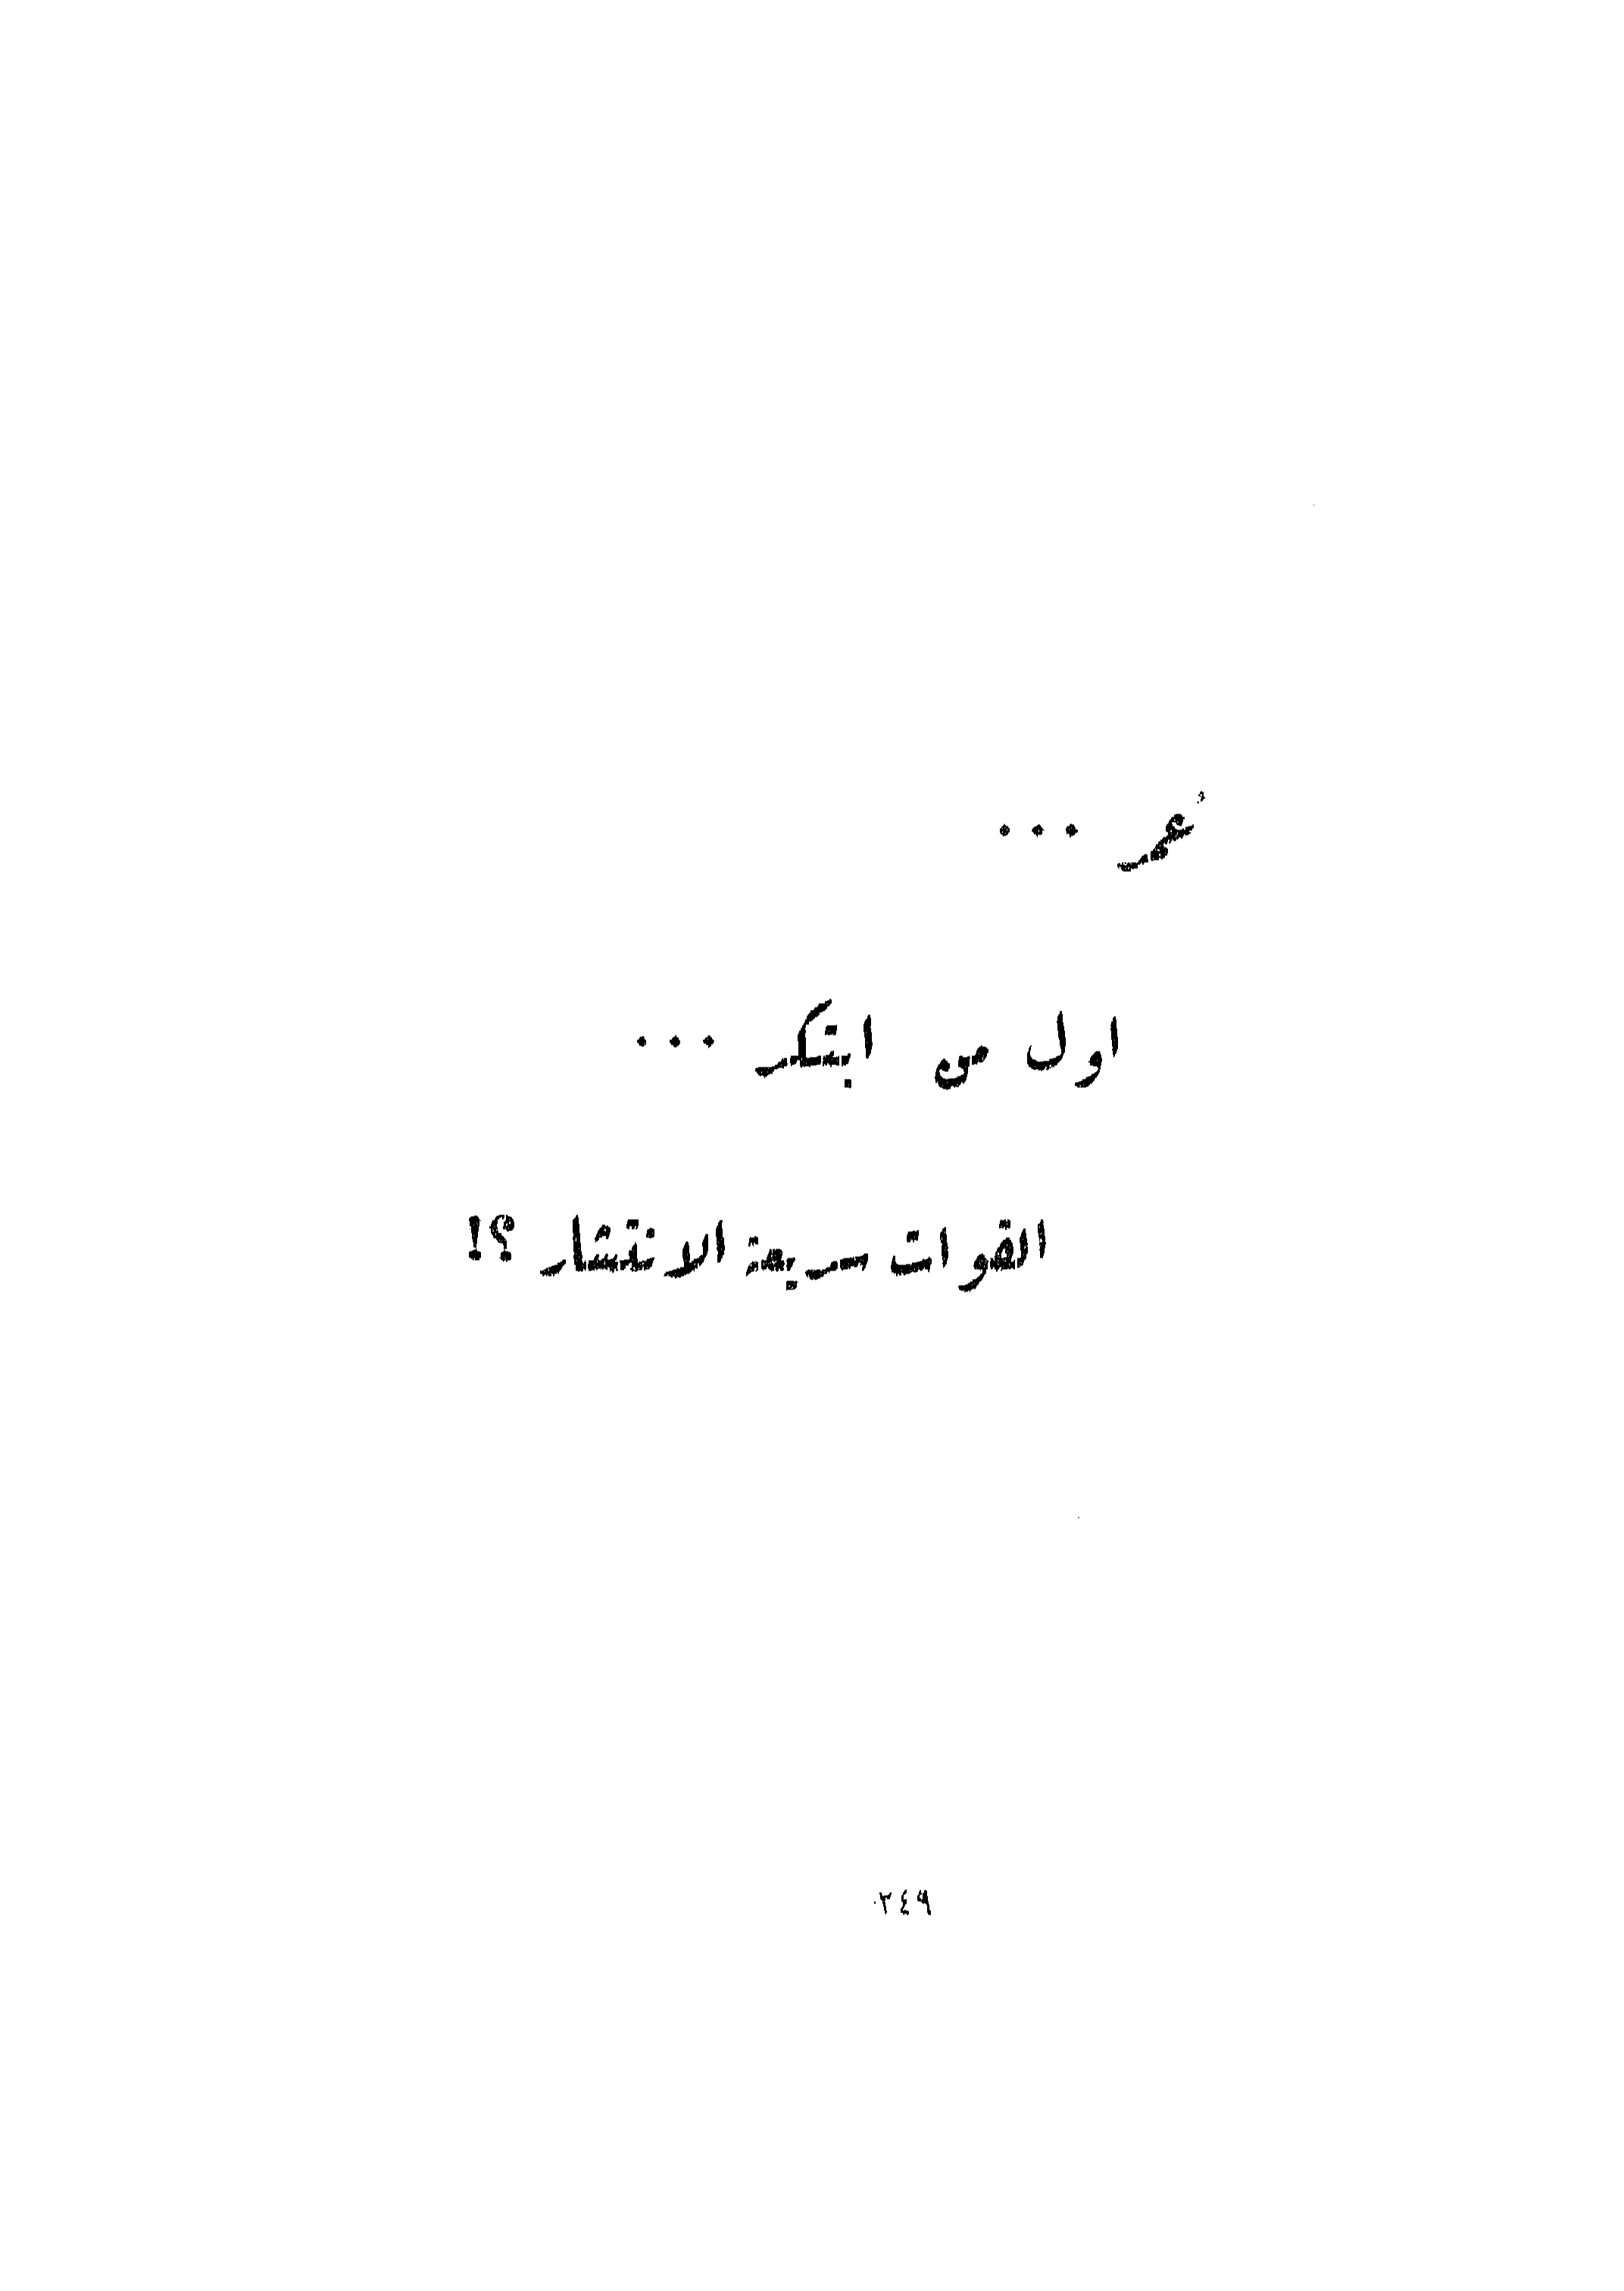 عُمر ...
اول من ابتكر ...
القوات سريعة الانتشار ؟!
٢٤٩